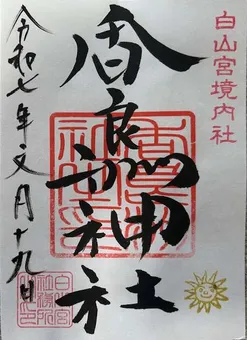 白山宮境内社
香良洲神社
令和七年文月十九日